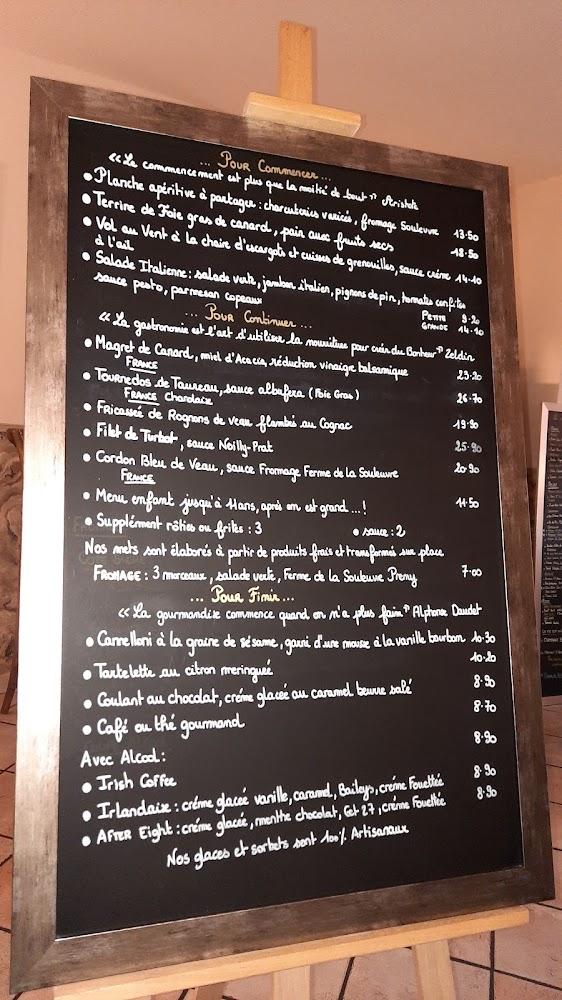 ... Pour Commencer ...
"Le commencement est plus que la moitié de tout" Aristote
• Planche apéritive à partager : charcuteries variées, fromage Souleuvre 13.50
• Terrine de Foie gras de canard, pain aux fruits secs 18.50
• Vol au Vent à la chaire d'escargots et cuisses de grenouilles, sauce crème 14.10
à l'ail
• Salade Italienne : salade verte, jambon italien, pignons de pin, tomates confites
sauce pesto, parmesan copeaux PETITE 9.20
GRANDE 14.10
... Pour Continuer ...
"La gastronomie est l'art d'utiliser la nourriture pour créer du Bonheur" Zeldin
• Magret de Canard, miel d'Acacia, réduction vinaigre balsamique 23.20
FRANCE
• Tournedos de Taureau, sauce albufera (Foie Gras) 26.70
FRANCE Charolaix
• Fricassée de Rognons de veau flambés au Cognac 19.90
• Filet de Turbot, sauce Noilly-Prat 25.90
• Cordon Bleu de Veau, sauce Fromage Ferme de la Souleuvre 20.90
FRANCE
• Menu enfant jusqu'à 11ans, après on est grand...! 11.50
• Supplément rôties ou frites : 3 • sauce : 2
Nos mets sont élaborés à partir de produits frais et transformés sur place
FROMAGE : 3 morceaux, salade verte, Ferme de la Souleuvre Preny 7.00
... Pour Finir ...
"La gourmandise commence quand on n'a plus faim" Alphonse Daudet
• Cannelloni à la graine de sésame, garni d'une mousse à la vanille bourbon 10.30
• Tartelette au citron meringuée 10.20
• Coulant au chocolat, crème glacée au caramel beurre salé 8.90
• Café ou thé gourmand 8.70
Avec Alcool :
• Irish Coffee 8.90
• Irlandaise : crème glacée vanille, caramel, Baileys, crème Fouettée 8.90
• AFTER Eight : crème glacée, menthe chocolat, Get 27, crème Fouettée 8.90
Nos glaces et sorbets sont 100% Artisanaux